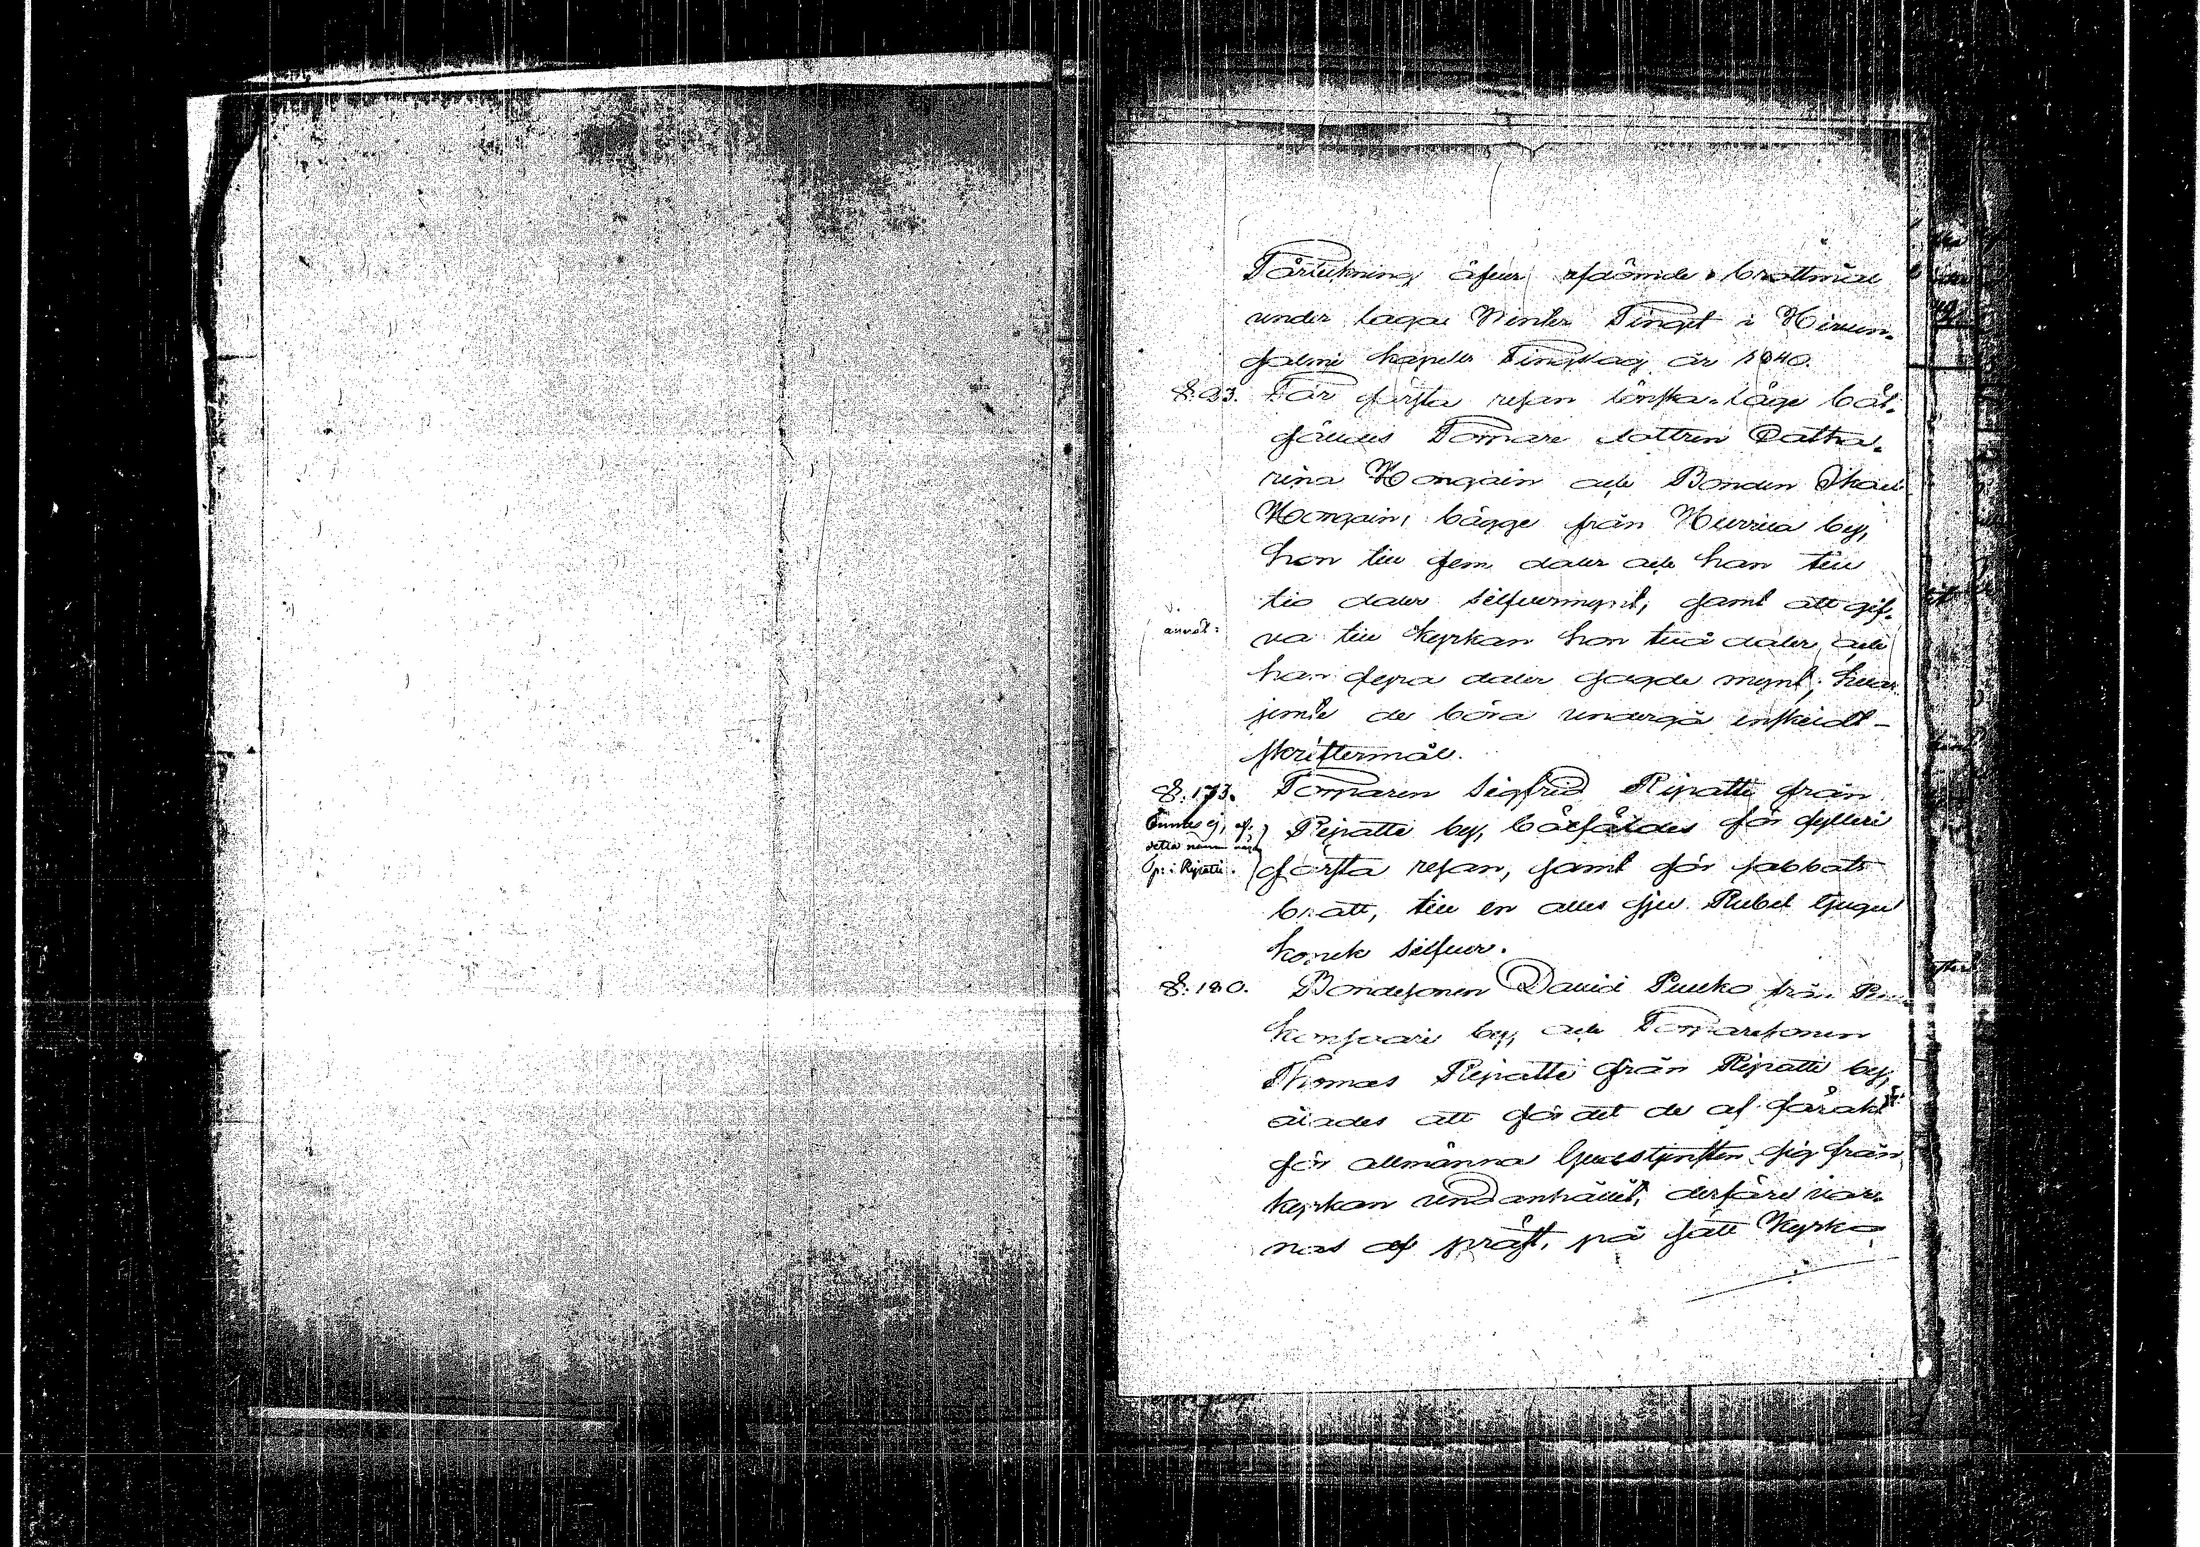 Förtekning öfver afdömde brottmål
under laga Winter Tinget i Hirven-
salmi kapells Tingslag år 1840.
§. 23. För första resan lönska-läge böt-
fälldes Torpare dottren Catha-
rina Hongain och Bonden Michael
Hongain, bägge från Hurrila by,
hon till fem daler och han till
tio daler silfvermynt, samt att gif-
va till kyrkan hon två daler, och
han fyra daler sagde mynt, hvar-
jemte de böra undergå enskildt
skriftermål.
§. 173. Torparen Sigfrid Ripatti från
Ripatti by, bötfäldes för fylleri
första resan, samt för sabbats
brått, till en alles sju Rubel tjugu
kopek silfver.
finnes ej, af
detta namn
p: i Ripatti.
§. 180. Bondesonen David Pulcko från
by, och Torparesonen
Thomas Ripatti från Ripatti by,
ålades att för det de af förakt
för allmänna Gudstjensten sig från
kyrkan undanhållit, derföre var-
nas af präst, på sätt Kyrko